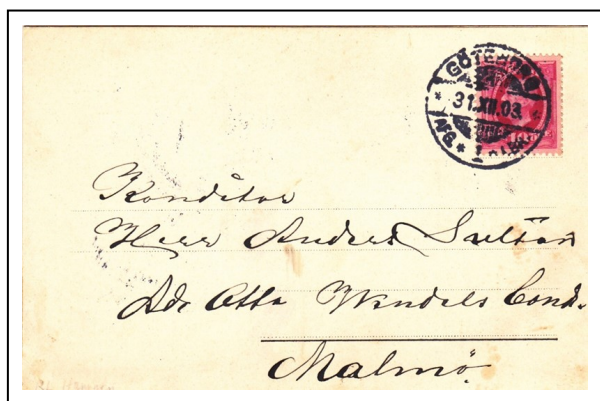 GÖTEBORG
31.XII.03.
AFG. * 1
Konditor
Herr Anders Sultan
Adr Otto Wendels Cond.
Malmö